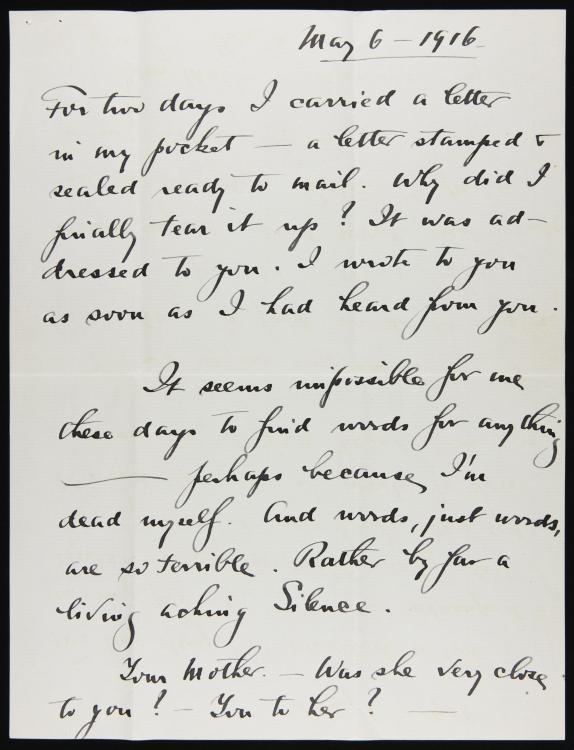 May 6 – 1916
For two days I carried a letter
in my pocket — a letter stamped &
sealed ready to mail. Why did I
finally tear it up? It was ad-
dressed to you. I wrote to you
as soon as I had heard from you.
It seems impossible for me
these days to find words for anything
—— perhaps because I'm
dead myself. And words, just words,
are so terrible. Rather by far a
living aching Silence.
Your Mother. – Was she very close
to you? – You to her? —